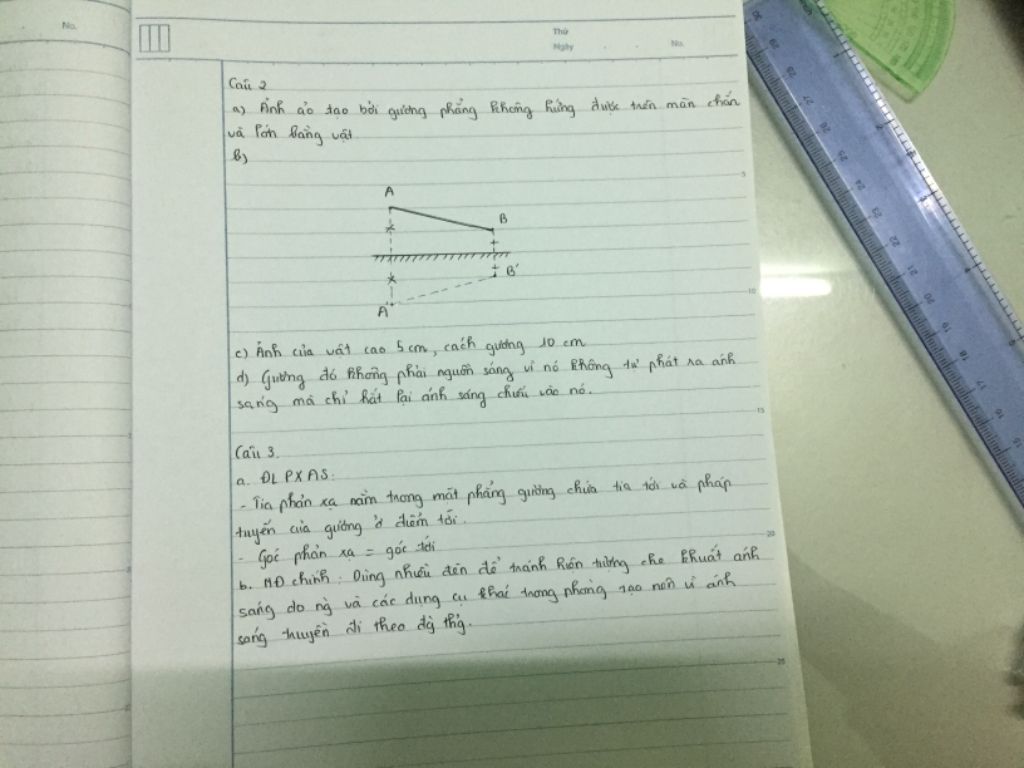 No.
Thứ
Ngày
No.
Câu 2
a) Ảnh ảo tạo bởi gương phẳng không hứng được trên màn chắn
và lớn bằng vật
b)
A
B
B'
A'
c) Ảnh của vật cao 5 cm, cách gương 10 cm
d) Gương đó không phải nguồn sáng vì nó không tự phát ra ánh
sáng mà chỉ hắt lại ánh sáng chiếu vào nó.
Câu 3.
a. ĐL PXAS:
- Tia phản xạ nằm trong mặt phẳng gương chứa tia tới và pháp
tuyến của gương ở điểm tới.
- Góc phản xạ = góc tới
b. MĐ chính: Dùng nhiều đèn để tránh hiện tượng che khuất ánh
sáng do ng và các dụng cụ khác trong phòng tạo nên vì ánh
sáng truyền đi theo đg thg.
5
10
15
20
25
30
29
28
27
26
25
24
23
22
21
20
19
18
17
16
15